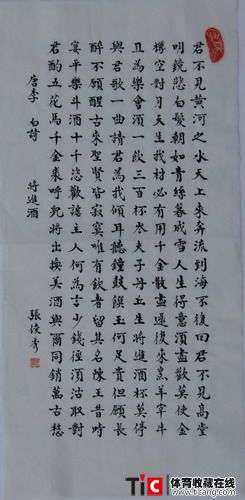 君不見黃河之水天上來奔流到海不復回君不見高堂
明鏡悲白髮朝如青絲暮成雪人生得意須盡歡莫使金
樽空對月天生我材必有用千金散盡還復來烹羊宰牛
且為樂會須一飲三百杯岑夫子丹丘生將進酒杯莫停
與君歌一曲請君為我傾耳聽鐘鼓饌玉何足貴但願長
醉不願醒古來聖賢皆寂寞唯有飲者留其名陳王昔時
宴平樂斗酒十千恣歡謔主人何為言少錢徑須沽取對
君酌五花馬千金裘呼兒將出換美酒與爾同銷萬古愁
唐李白詩 將進酒 張俊秀
TIC 体育收藏在线
www.ticang.com